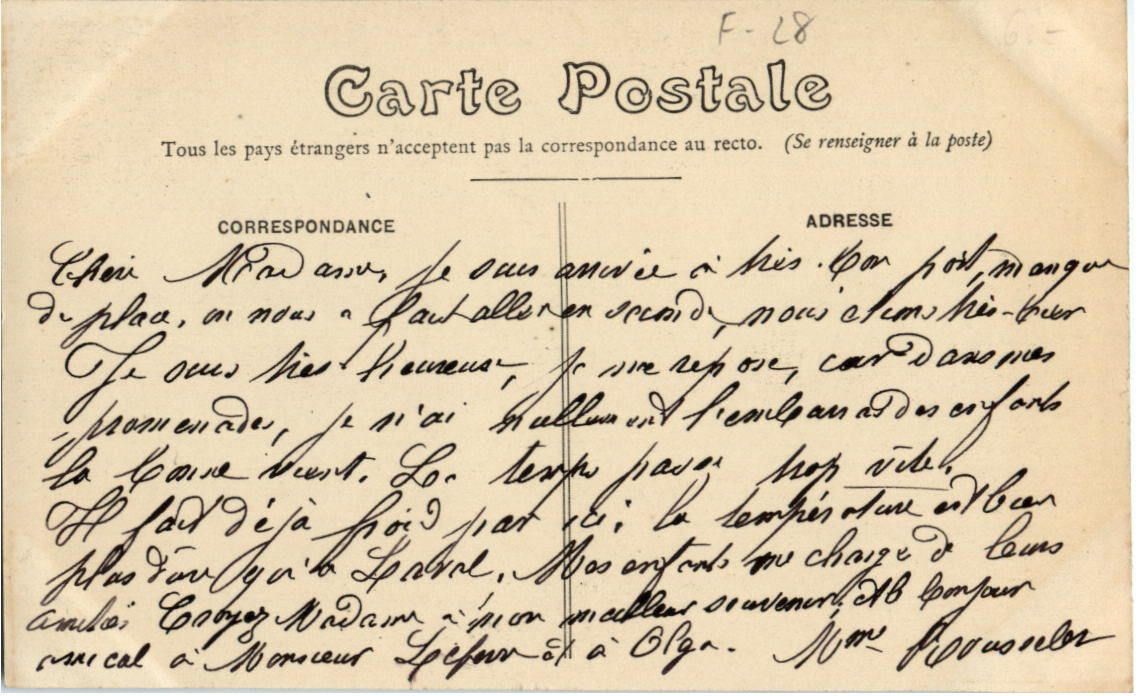 F - 28
6.-
Carte Postale
Tous les pays étrangers n'acceptent pas la correspondance au recto. (Se renseigner à la poste)
CORRESPONDANCE
ADRESSE
Madame, je suis arrivée à très bon port, manque
de place, on nous a fait aller en seconde, nous étions très bien
Je suis très heureuse, je me repose, car dans mes
promenades, je n'ai nullement l'embarras des enfants
la bonne vient. Le temps passe trop vite.
Il fait déjà froid par ici, la température est bien
plus dure qu'à Laval. Mes enfants me charge de leurs
amitiés Croyez Madame à mon meilleur souvenir, et bonjour
amical à Monsieur et à Olga. Mme Rousselet